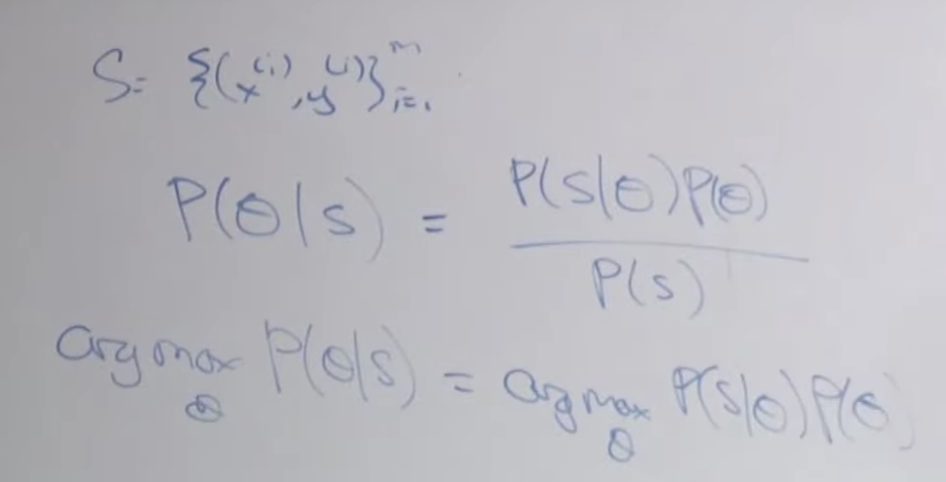 S = {(x^(i), y^(i))}_{i=1}^m
P(θ|S) = P(S|θ)P(θ) / P(S)
arg max_θ P(θ|S) = arg max_θ P(S|θ)P(θ)